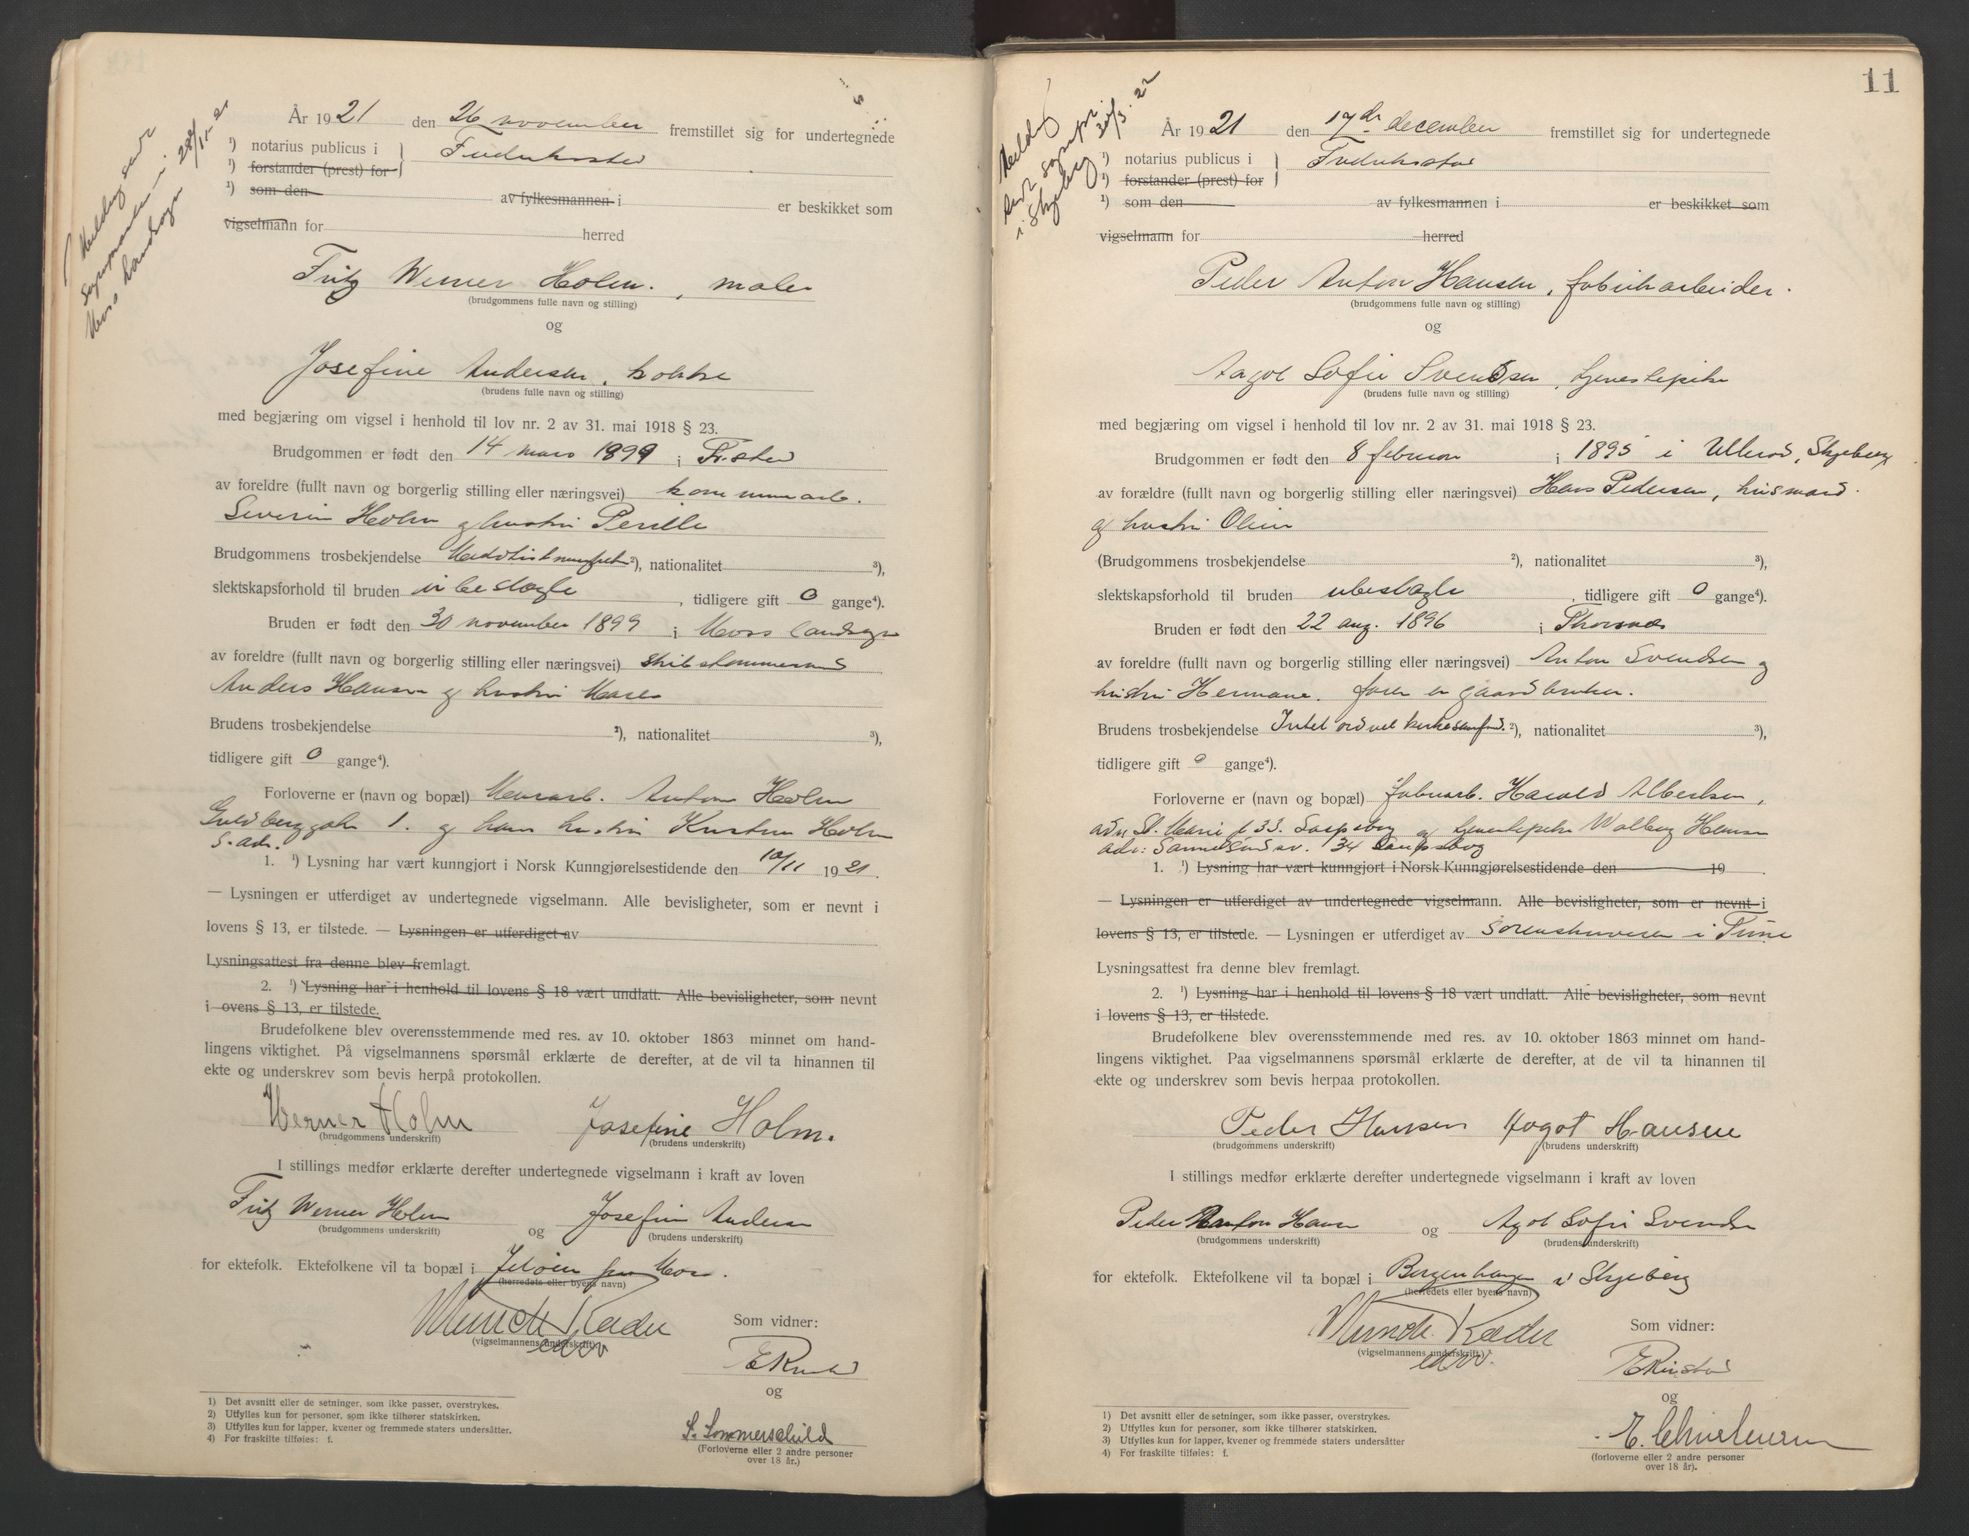 Melding sendt
sognepresten i 28/11-21
Moss landsogn
År 1921 den 26 november fremstillet sig for undertegnede
¹) notarius publicus i Fredrikstad
¹) forstander (prest) for
¹) som den av fylkesmannen i er beskikket som
vigselmann for herred
Fritz Werner Holm, maler
(brudgommens fulle navn og stilling)
og
Josefine Andersen, kokke
(brudens fulle navn og stilling)
med begjæring om vigsel i henhold til lov nr. 2 av 31. mai 1918 § 23.
Brudgommen er født den 14 mars 1899 i Fr.stad
av foreldre (fullt navn og borgerlig stilling eller næringsvei) kommunarb.
Severin Holm og hustru Pernille
Brudgommens trosbekjendelse ²), nationalitet ³),
slektskapsforhold til bruden ubeslægte, tidligere gift 0 gange⁴).
Bruden er født den 30 november 1899 i Moss landsogn
av foreldre (fullt navn og borgerlig stilling eller næringsvei) skibstømmermand
Anders Hansen og hustru Maren
Brudens trosbekjendelse ²), nationalitet ³),
tidligere gift 0 gange⁴).
Forloverne er (navn og bopæl) Murarb. Anton Holm
Guldberggaten 1. og hans hustru Kristine Holm
s. adr.
1. ¹) Lysning har vært kunngjort i Norsk Kunngjørelsestidende den 10/11 1921.
— Lysningen er utferdiget av undertegnede vigselmann. Alle bevisligheter, som er nevnt i
lovens § 13, er tilstede. — Lysningen er utferdiget av
Lysningsattest fra denne blev fremlagt.
2. ¹) Lysning har i henhold til lovens § 18 vært undlatt. Alle bevisligheter, som nevnt
i ovens § 13, er tilstede.
Brudefolkene blev overensstemmende med res. av 10. oktober 1863 minnet om hand-
lingens viktighet. På vigselmannens spørsmål erklærte de derefter, at de vil ta hinannen til
ekte og underskrev som bevis herpå protokollen.
Werner Holm Josefine Holm.
(brudgommens underskrift) (brudens underskrift)
I stillings medfør erklærte derefter undertegnede vigselmann i kraft av loven
Fritz Werner Holm og Josefine Andersen
(brudgommens underskrift) (brudens underskrift)
for ektefolk. Ektefolkene vil ta bopæl i Jeløen pr Moss.
(herredets eller byens navn)
Munch Ræder
(vigselmannens underskrift)
Som vidner:
og
S. Sommerschild
(Forloverne eller 2 andre personer
over 18 år.)
1) Det avsnitt eller de setninger, som ikke passer, overstrykes.
2) Utfylles kun for personer, som ikke tilhører statskirken.
3) Utfylles kun for lapper, kvener og fremmede staters undersåtter.
4) For fraskilte tilføies: f.
11
Melding
sendt sognepr. 20/3.22
i Skjeberg
År 1921 den 17de december fremstillet sig for undertegnede
¹) notarius publicus i Fredrikstad
¹) forstander (prest) for
¹) som den av fylkesmannen i er beskikket som
vigselmann for herred
Peder Anton Hansen, fabrikarbeider.
(brudgommens fulle navn og stilling)
og
Aagot Sofie Svendsen, tjenestepike
(brudens fulle navn og stilling)
med begjæring om vigsel i henhold til lov nr. 2 av 31. mai 1918 § 23.
Brudgommen er født den 8 februar i 1895 i Ullerød, Skjeberg
av forældre (fullt navn og borgerlig stilling eller næringsvei) Hans Pedersen, husmand
og hustru Oline
(Brudgommens trosbekjendelse ²), nationalitet ³),
slektskapsforhold til bruden ubeslægte, tidligere gift 0 gange⁴).
Bruden er født den 22 aug. 1896 i Thorsnæs
av foreldre (fullt navn og borgerlig stilling eller næringsvei) Anton Svendsen og
hustru Hermane. faren er gaardbruker.
Brudens trosbekjendelse Intet ordnet kirkesamfund. ²), nationalitet ³),
tidligere gift 0 gange⁴).
Forloverne er (navn og bopæl) fabrikarb. Harald Albertsen,
adr St. Marie gt 33. Sarpsborg og tjenestepike Walborg Hansen
adr: 34 Sarpsborg
1. ¹) Lysning har vært kunngjort i Norsk Kunngjørelsestidende den 19 .
— Lysningen er utferdiget av undertegnede vigselmann. Alle bevisligheter, som er nevnt i
lovens § 13, er tilstede. — Lysningen er utferdiget av Sorenskriveren i Tune
Lysningsattest fra denne blev fremlagt.
2. ¹) Lysning har i henhold til lovens § 18 vært undlatt. Alle bevisligheter, som nevnt
i lovens § 13, er tilstede.
Brudefolkene blev overensstemmende med res. av 10. oktober 1863 minnet om hand-
lingens viktighet. Paa vigselmannens spørsmål erklærte de derefter, at de vil ta hinannen til
ekte og underskrev som bevis herpaa protokollen.
Peder Hansen Aagot Hansen
(brudgommens underskrift) (brudens underskrift)
I stillings medfør erklærte derefter undertegnede vigselmann i kraft av loven
Peder Anton Hansen og Agot Sofie Svendsen
(brudgommens underskrift) (brudens underskrift)
for ektefolk. Ektefolkene vil ta bopæl i Borgenhaugen i Skjeberg
(herredets eller byens navn)
Munch Ræder
(vigselmannens underskrift)
Som vidner:
og
E. Christensen
(forloverne eller 2 andre personer
over 18 år).
1) Det avsnitt eller de setninger, som ikke passer, overstrykes.
2) Utfylles kun for personer, som ikke tilhører statskirken.
3) Utfylles kun for lapper, kvener og fremmede staters undersåtter
4) For fraskilte tilføies: f.